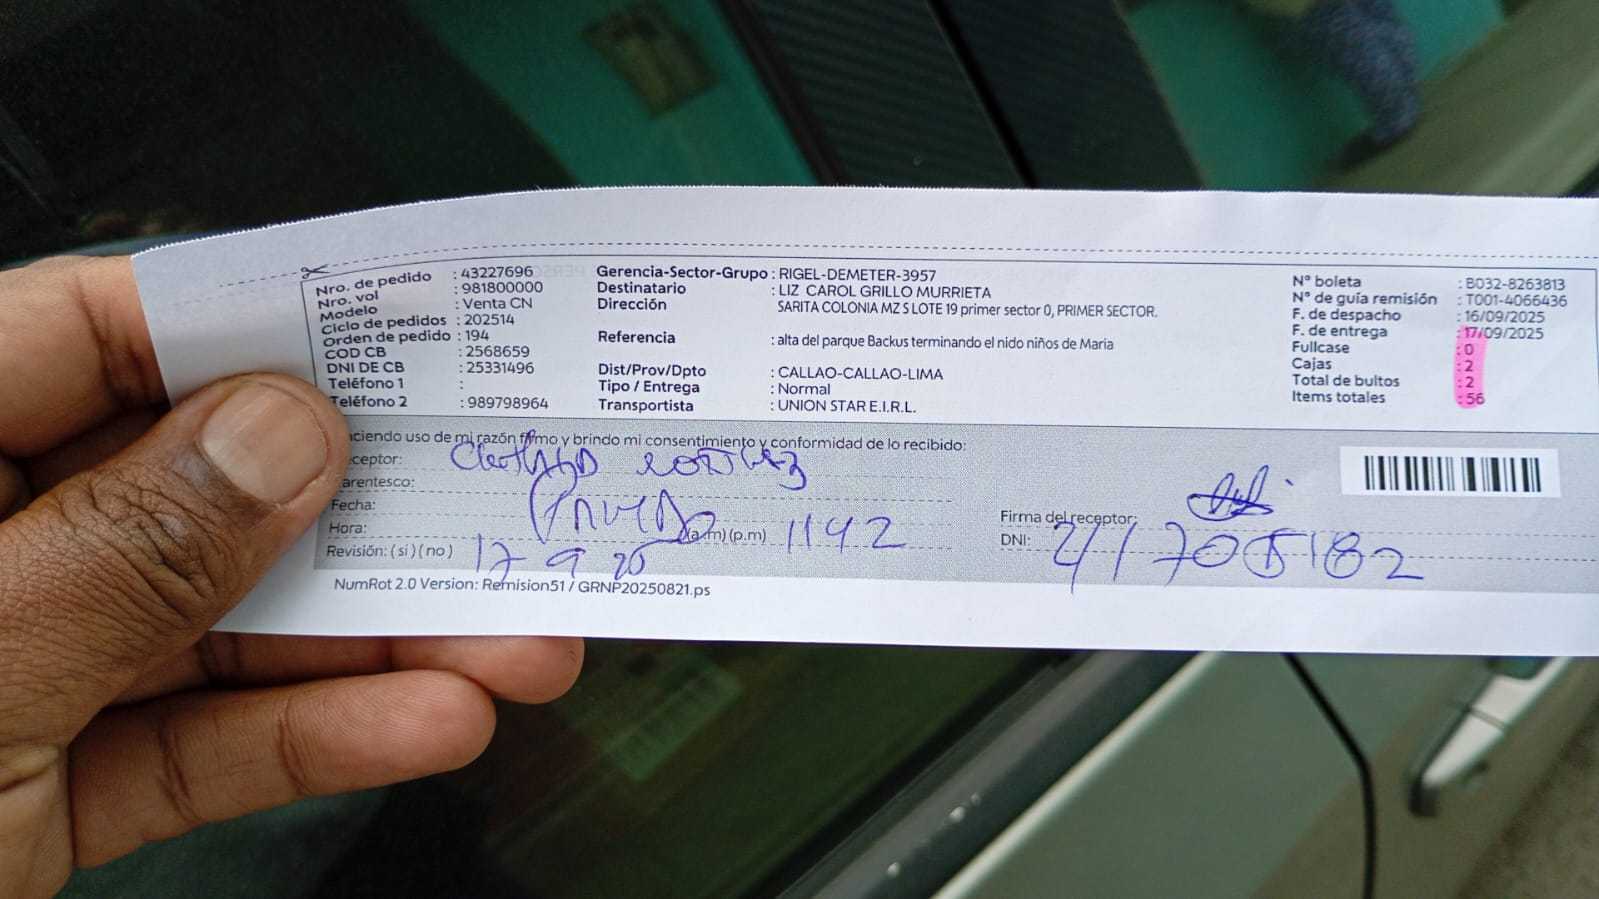 Nro. de pedido : 43227696
Nro. vol : 981800000
Modelo : Venta CN
Ciclo de pedidos : 202514
Orden de pedido : 194
COD CB : 2568659
DNI DE CB : 25331496
Teléfono 1 :
Teléfono 2 : 989798964
Gerencia-Sector-Grupo : RIGEL-DEMETER-3957
Destinatario : LIZ CAROL GRILLO MURRIETA
Dirección SARITA COLONIA MZ S LOTE 19 primer sector 0, PRIMER SECTOR.
Referencia : alta del parque Backus terminando el nido niños de Maria
Dist/Prov/Dpto : CALLAO-CALLAO-LIMA
Tipo / Entrega : Normal
Transportista : UNION STAR E.I.R.L.
N° boleta : B032-8263813
N° de guía remisión : T001-4066436
F. de despacho : 16/09/2025
F. de entrega : 17/09/2025
Fullcase : 0
Cajas : 2
Total de bultos : 2
Items totales : 56
aciendo uso de mi razón firmo y brindo mi consentimiento y conformidad de lo recibido:
ceptor:
arentesco:
Fecha:
Hora: (a.m) (p.m) 1142
Revisión: ( si ) ( no ) 17 9 25
Firma del receptor:
DNI:
NumRot 2.0 Version: Remision51 / GRNP20250821.ps